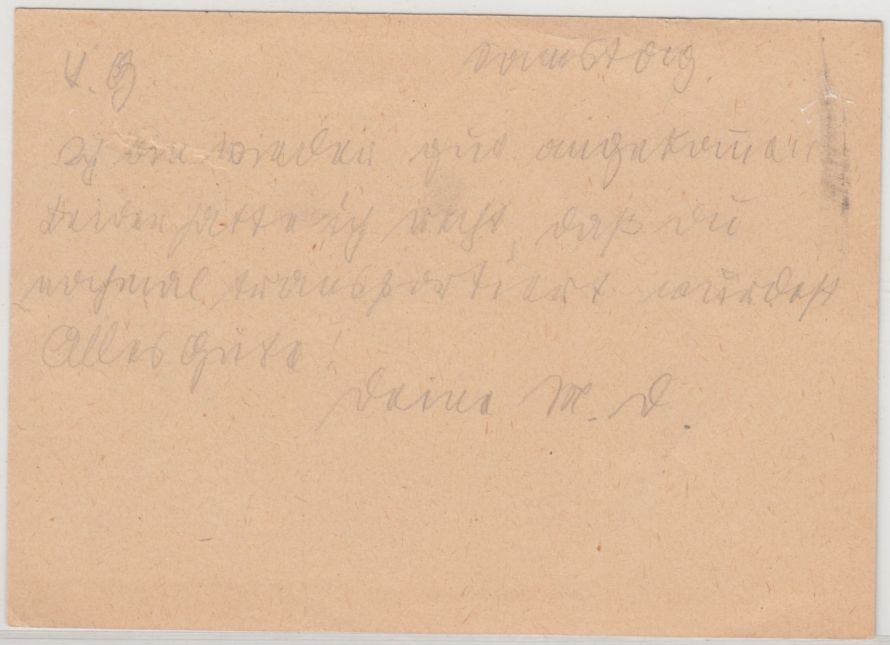 L. G. Samstag.
Ich bin wieder gut angekommen
Leider hatte ich recht, daß du
nochmal transportiert wurdest
Alles Gute!
Deine M. D.